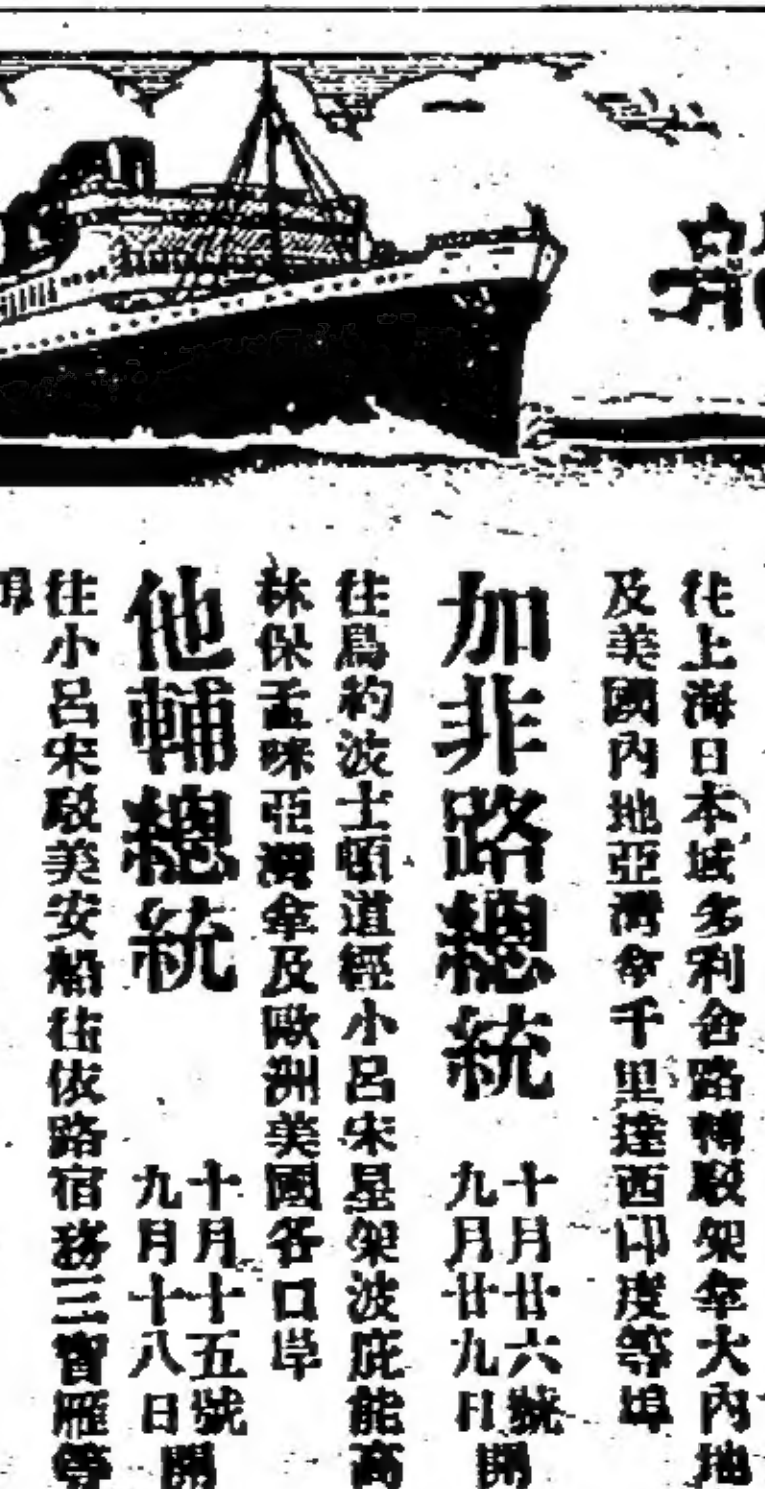 往上海日本域多利舍路轉駁架拿大內地
及美國內地亞灣拿千里達西印度等埠
加非路總統
十月廿六號
九月廿九日
開
往鳥約波士頓道經小呂宋星架波庇能高
林保孟咪亞灣拿及歐洲美國各口岸
他輔總統
十月十五號
九月十八日
開
往小呂宋駁美安船往依路宿務三寶雁等
埠